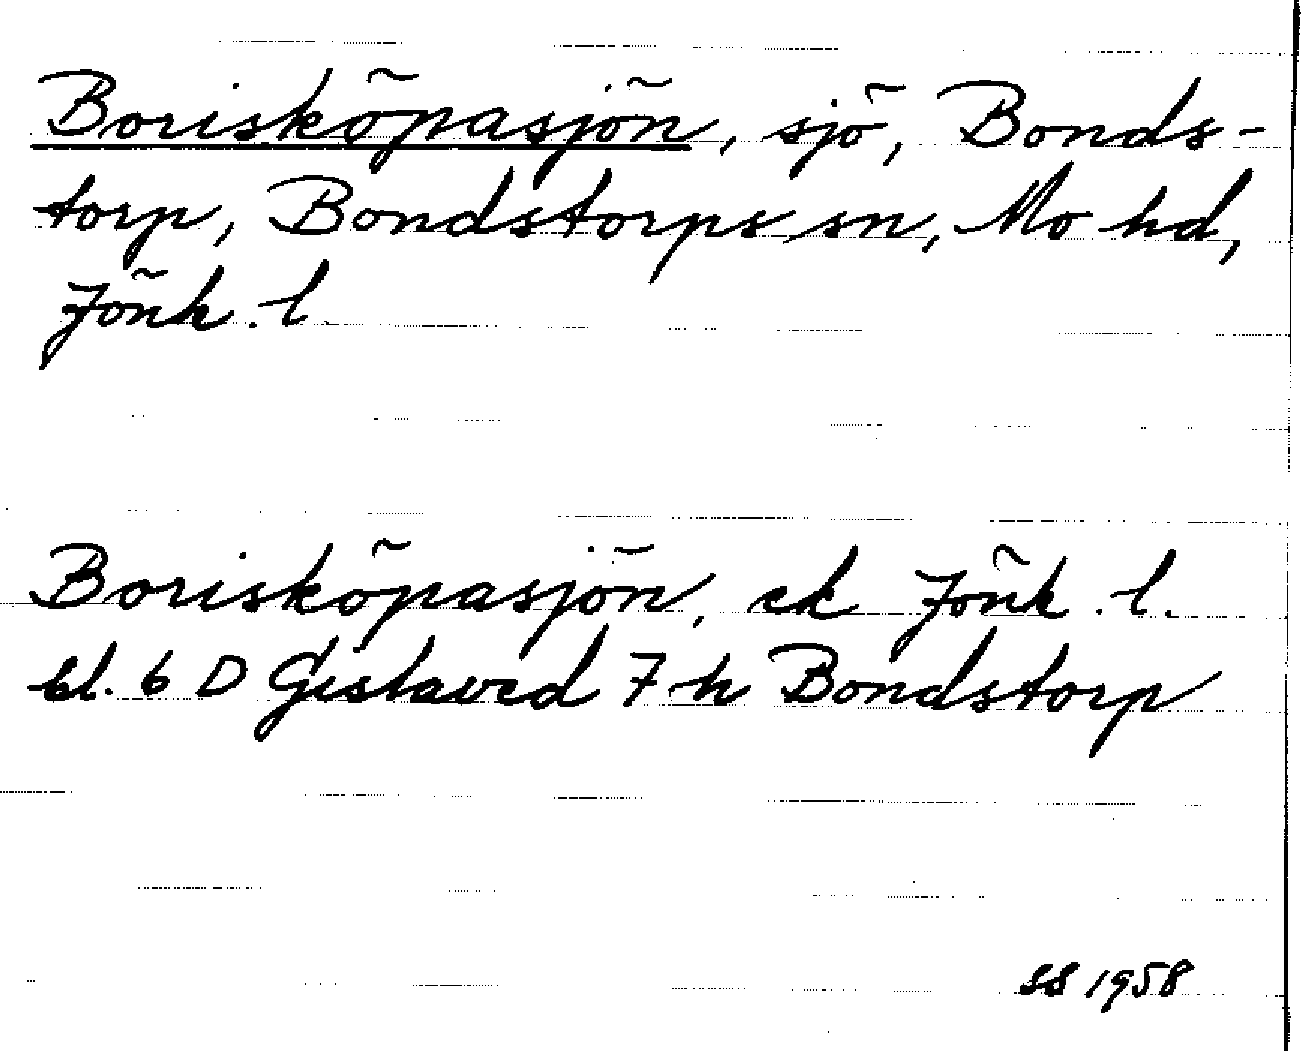 Borisköpasjön, sjö, Bonds-
torp, Bondstorps sn, Mo hd,
Jönk. l.
Borisköpasjön, ek Jönk. l.
bl. 6 D Gislaved 7 h Bondstorp
SS 1958